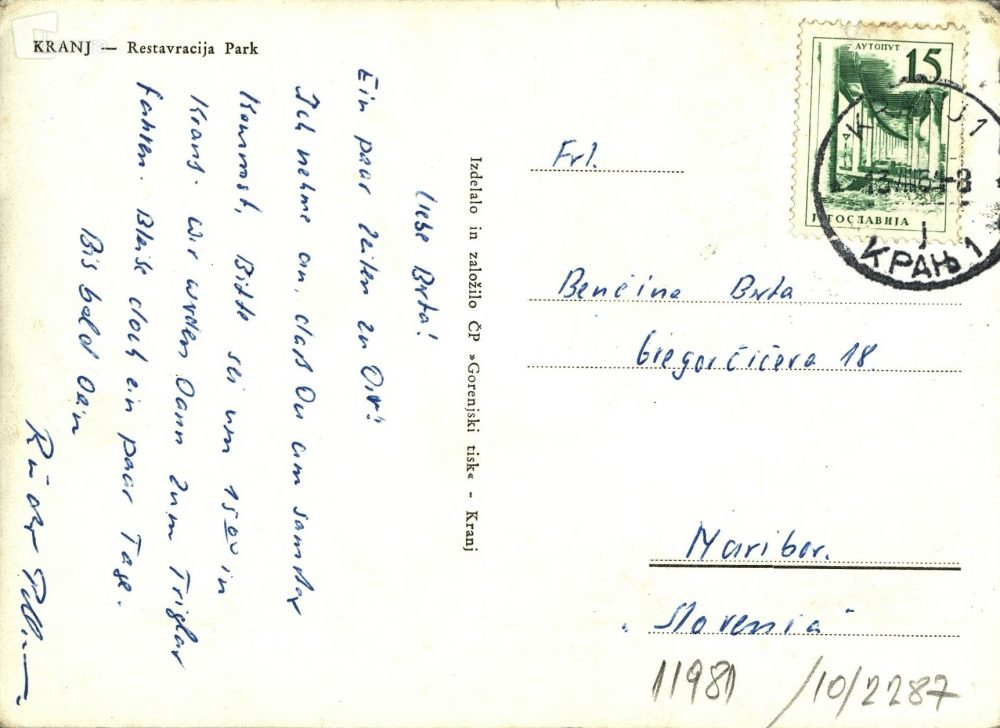 KRANJ — Restavracija Park
Liebe Berta!
Ein paar Zeilen zu Dir!
Ich nehme an, daß Du am Samstag
kommst, Bitte sei um 15⁰⁰ in
Kranj. Wir werden Dann zum Triglav
fahren. Bleibe doch ein paar Tage.
Bis bald Dein
Izdelalo in založilo ČP »Gorenjski tisk« - Kranj
АУТОПУТ
15
ЈУГОСЛАВИЈА
KRANJ 1
КРАЊ 1
Frl.
Benčina Berta
Gregorčičeva 18.
Maribor.
"Slovenia"
11981 /10/2287